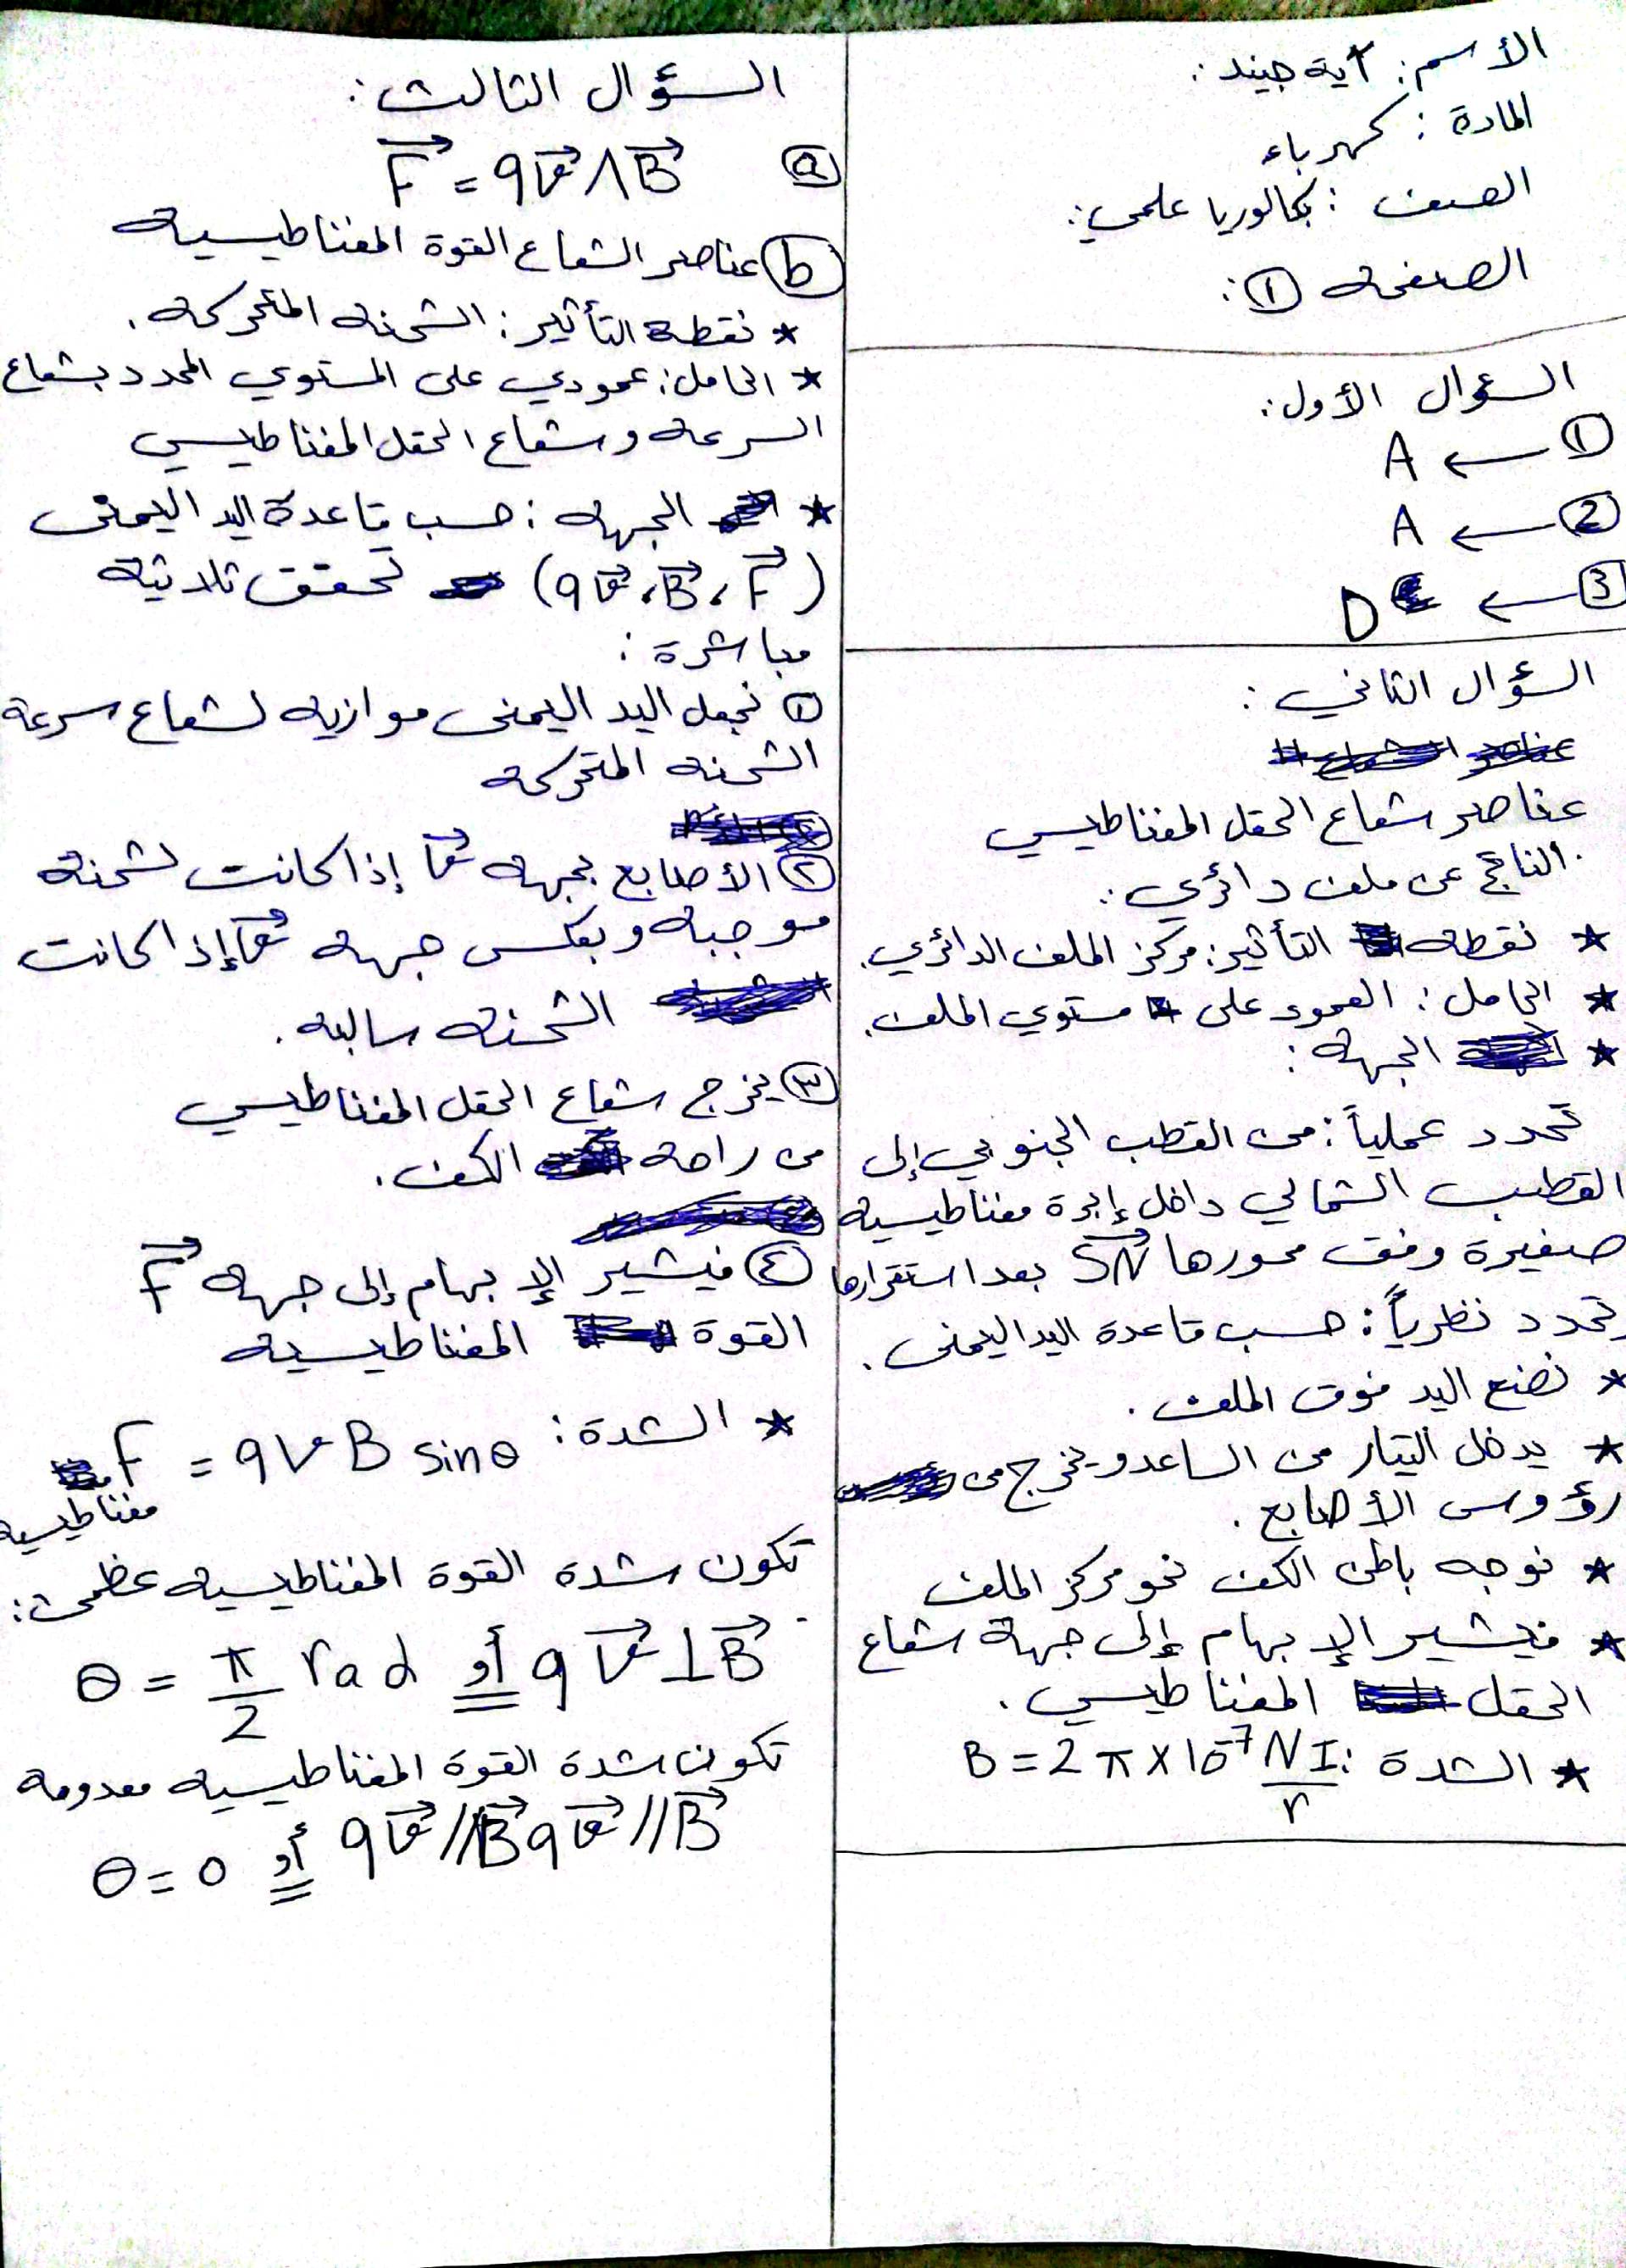 الأسم: آية جنيد:
المادة: كهرباء
الصف: بكالوريا علمي:
الصفحه ①:
السؤال الأول:
① ← A
② ← A
③ ← D
السؤال الثاني:
عناصر شعاع الحقل المغناطيسي
الناتج عن ملف دائري:
* نقطه التأثير: مركز الملف الدائري.
* الحامل: العمود على مستوي الملف.
* الجهه:
تحدد عملياً: من القطب الجنوبي إلى
القطب الشمالي داخل إبرة مغناطيسيه
صغيرة وفق محورها SN بعد استقرارها
وتحدد نظرياً: حسب قاعدة اليد اليمنى.
* نضع اليد فوق الملف.
* يدخل التيار من الساعد ويخرج من
رؤوس الأصابع.
* نوجه باطن الكف نحو مركز الملف
* فيشير الإبهام إلى جهة شعاع
الحقل المغناطيسي.
* الشدة: B = 2π×10⁻⁷ NI/r
السؤال الثالث:
ⓐ F⃗ = qv⃗ ∧ B⃗
ⓑ عناصر الشعاع القوة المغناطيسيه
* نقطه التأثير: الشحنه المتحركه.
* الحامل: عمودي على المستوي المحدد بشعاع
السرعه وشعاع الحقل المغناطيسي
* الجهه: حسب قاعدة اليد اليمنى
(qv⃗، B⃗، F⃗) تحقق ثلاثية
مباشرة:
① نجعل اليد اليمنى موازيه لشعاع سرعة
الشحنه المتحركه
② الأصابع بجهه v⃗ إذا كانت لشحنه
موجبه وبعكس جهه v⃗ إذا كانت
الشحنه سالبه.
③ يخرج شعاع الحقل المغناطيسي
من راحه الكف.
④ فيشير الإبهام إلى جهه F⃗
القوة المغناطيسيه
* الشدة: F = qvB sinθ
مغناطيسيه
تكون شدة القوة المغناطيسيه عظمى:
qv⃗ ⊥ B⃗ أو θ = π/2 rad
تكون شدة القوة المغناطيسيه معدومه
qv⃗ // B⃗ qv⃗ // B⃗ أو θ = 0